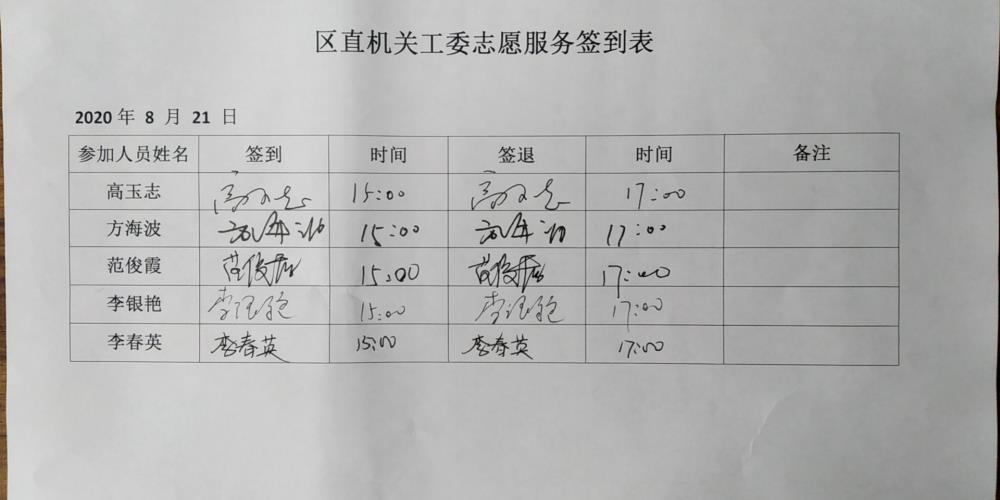 区直机关工委志愿服务签到表
2020 年 8 月 21 日
参加人员姓名 签到 时间 签退 时间 备注
高玉志 高玉志 15:00 高玉志 17:00
方海波 方海波 15:00 方海波 17:00
范俊霞 范俊霞 15:00 范俊霞 17:00
李银艳 李银艳 15:00 李银艳 17:00
李春英 李春英 15:00 李春英 17:00